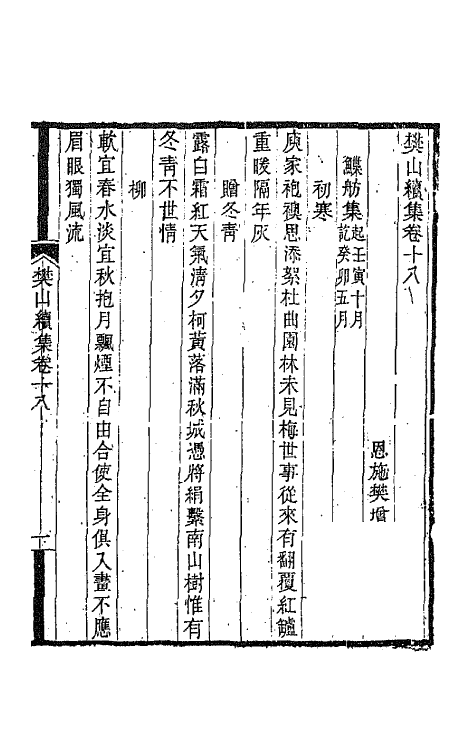 樊山續集卷十八
恩施樊增
鰈舫集起壬寅十月
訖癸卯五月
初寒
庾家袍襖思添絮杜曲園林未見梅世事從來有翻覆紅鑪
重暖隔年灰
贈冬青
露白霜紅天氣清夕柯黃落滿秋城憑將絹繫南山樹惟有
冬青不世情
柳
軟宜春水淡宜秋抱月飄煙不自由合使全身俱入畫不應
眉眼獨風流
樊山續集卷十八
一